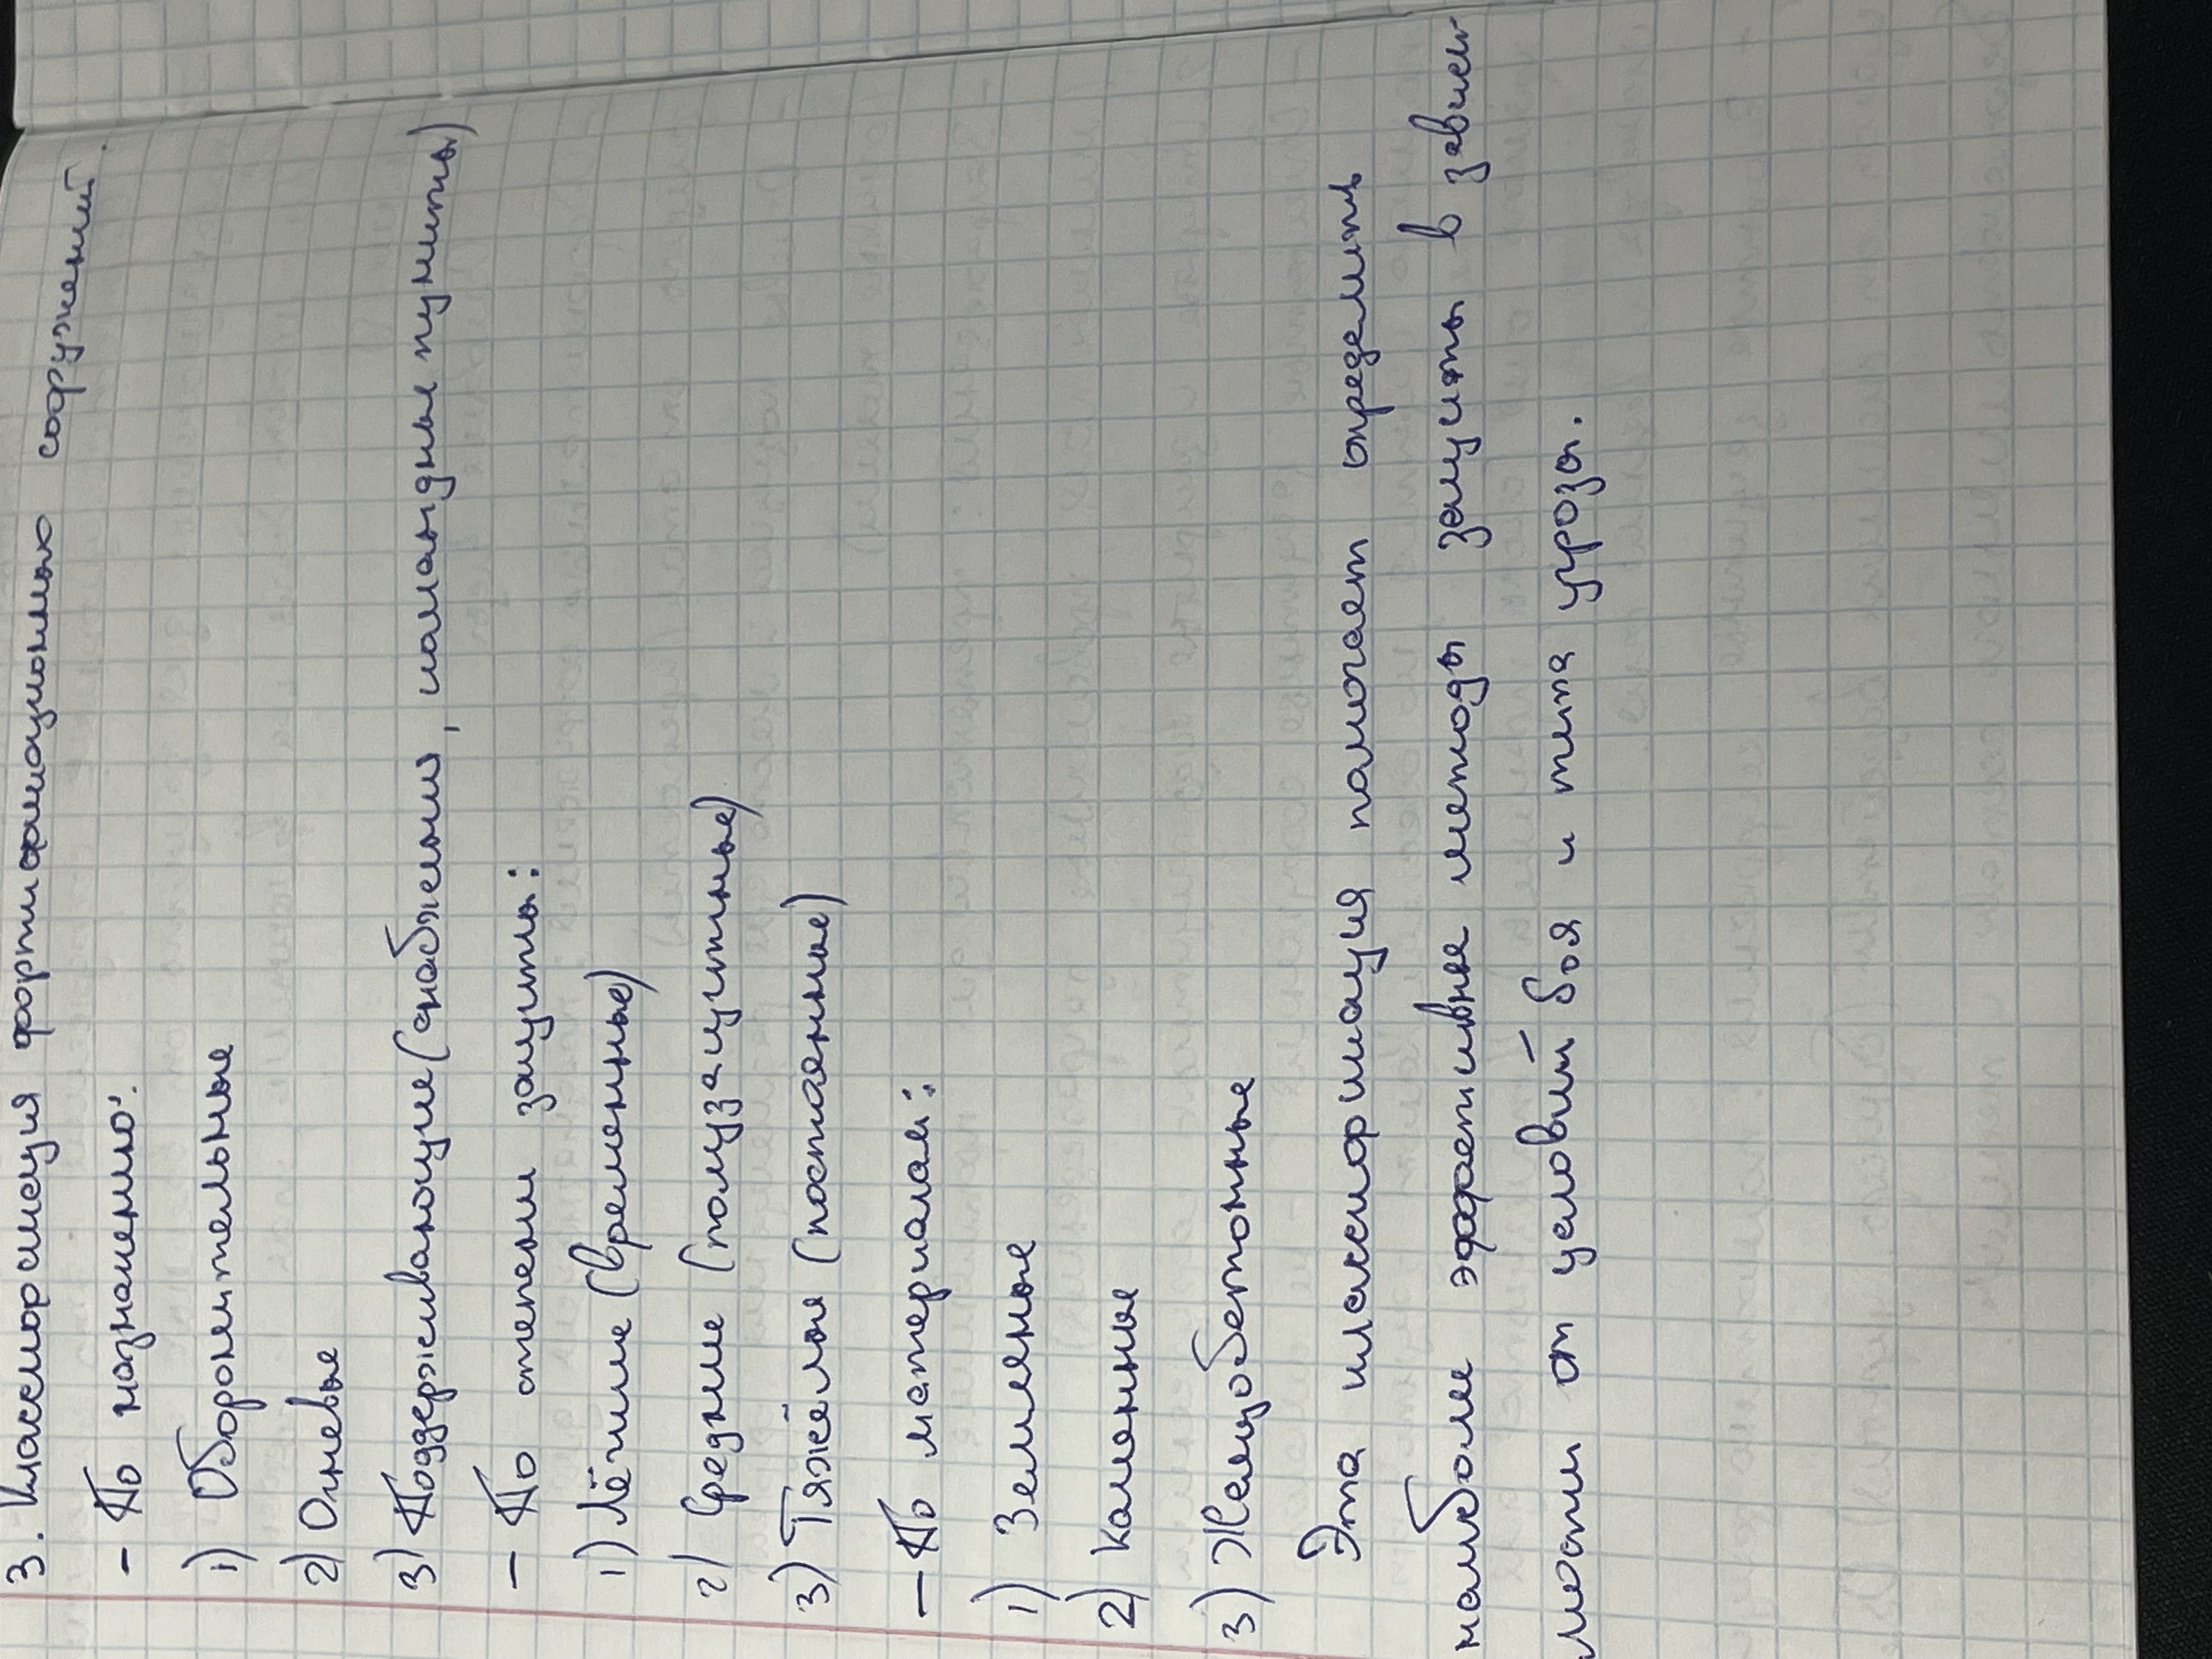 3. Классификация фортификационных сооружений.
- По назначению:
1) Оборонительные
2) Огневые
3) Поддерживающие (снабжения, командные пункты)
- По степени защиты:
1) Лёгкие (временные)
2) Средние (полузащитные)
3) Тяжёлые (постоянные)
- По материалам:
1) Земляные
2) Каменные
3) Железобетонные
Эта классификация помогает определить
наиболее эффективные методы защиты в зависи-
мости от условий боя и типа угрозы.